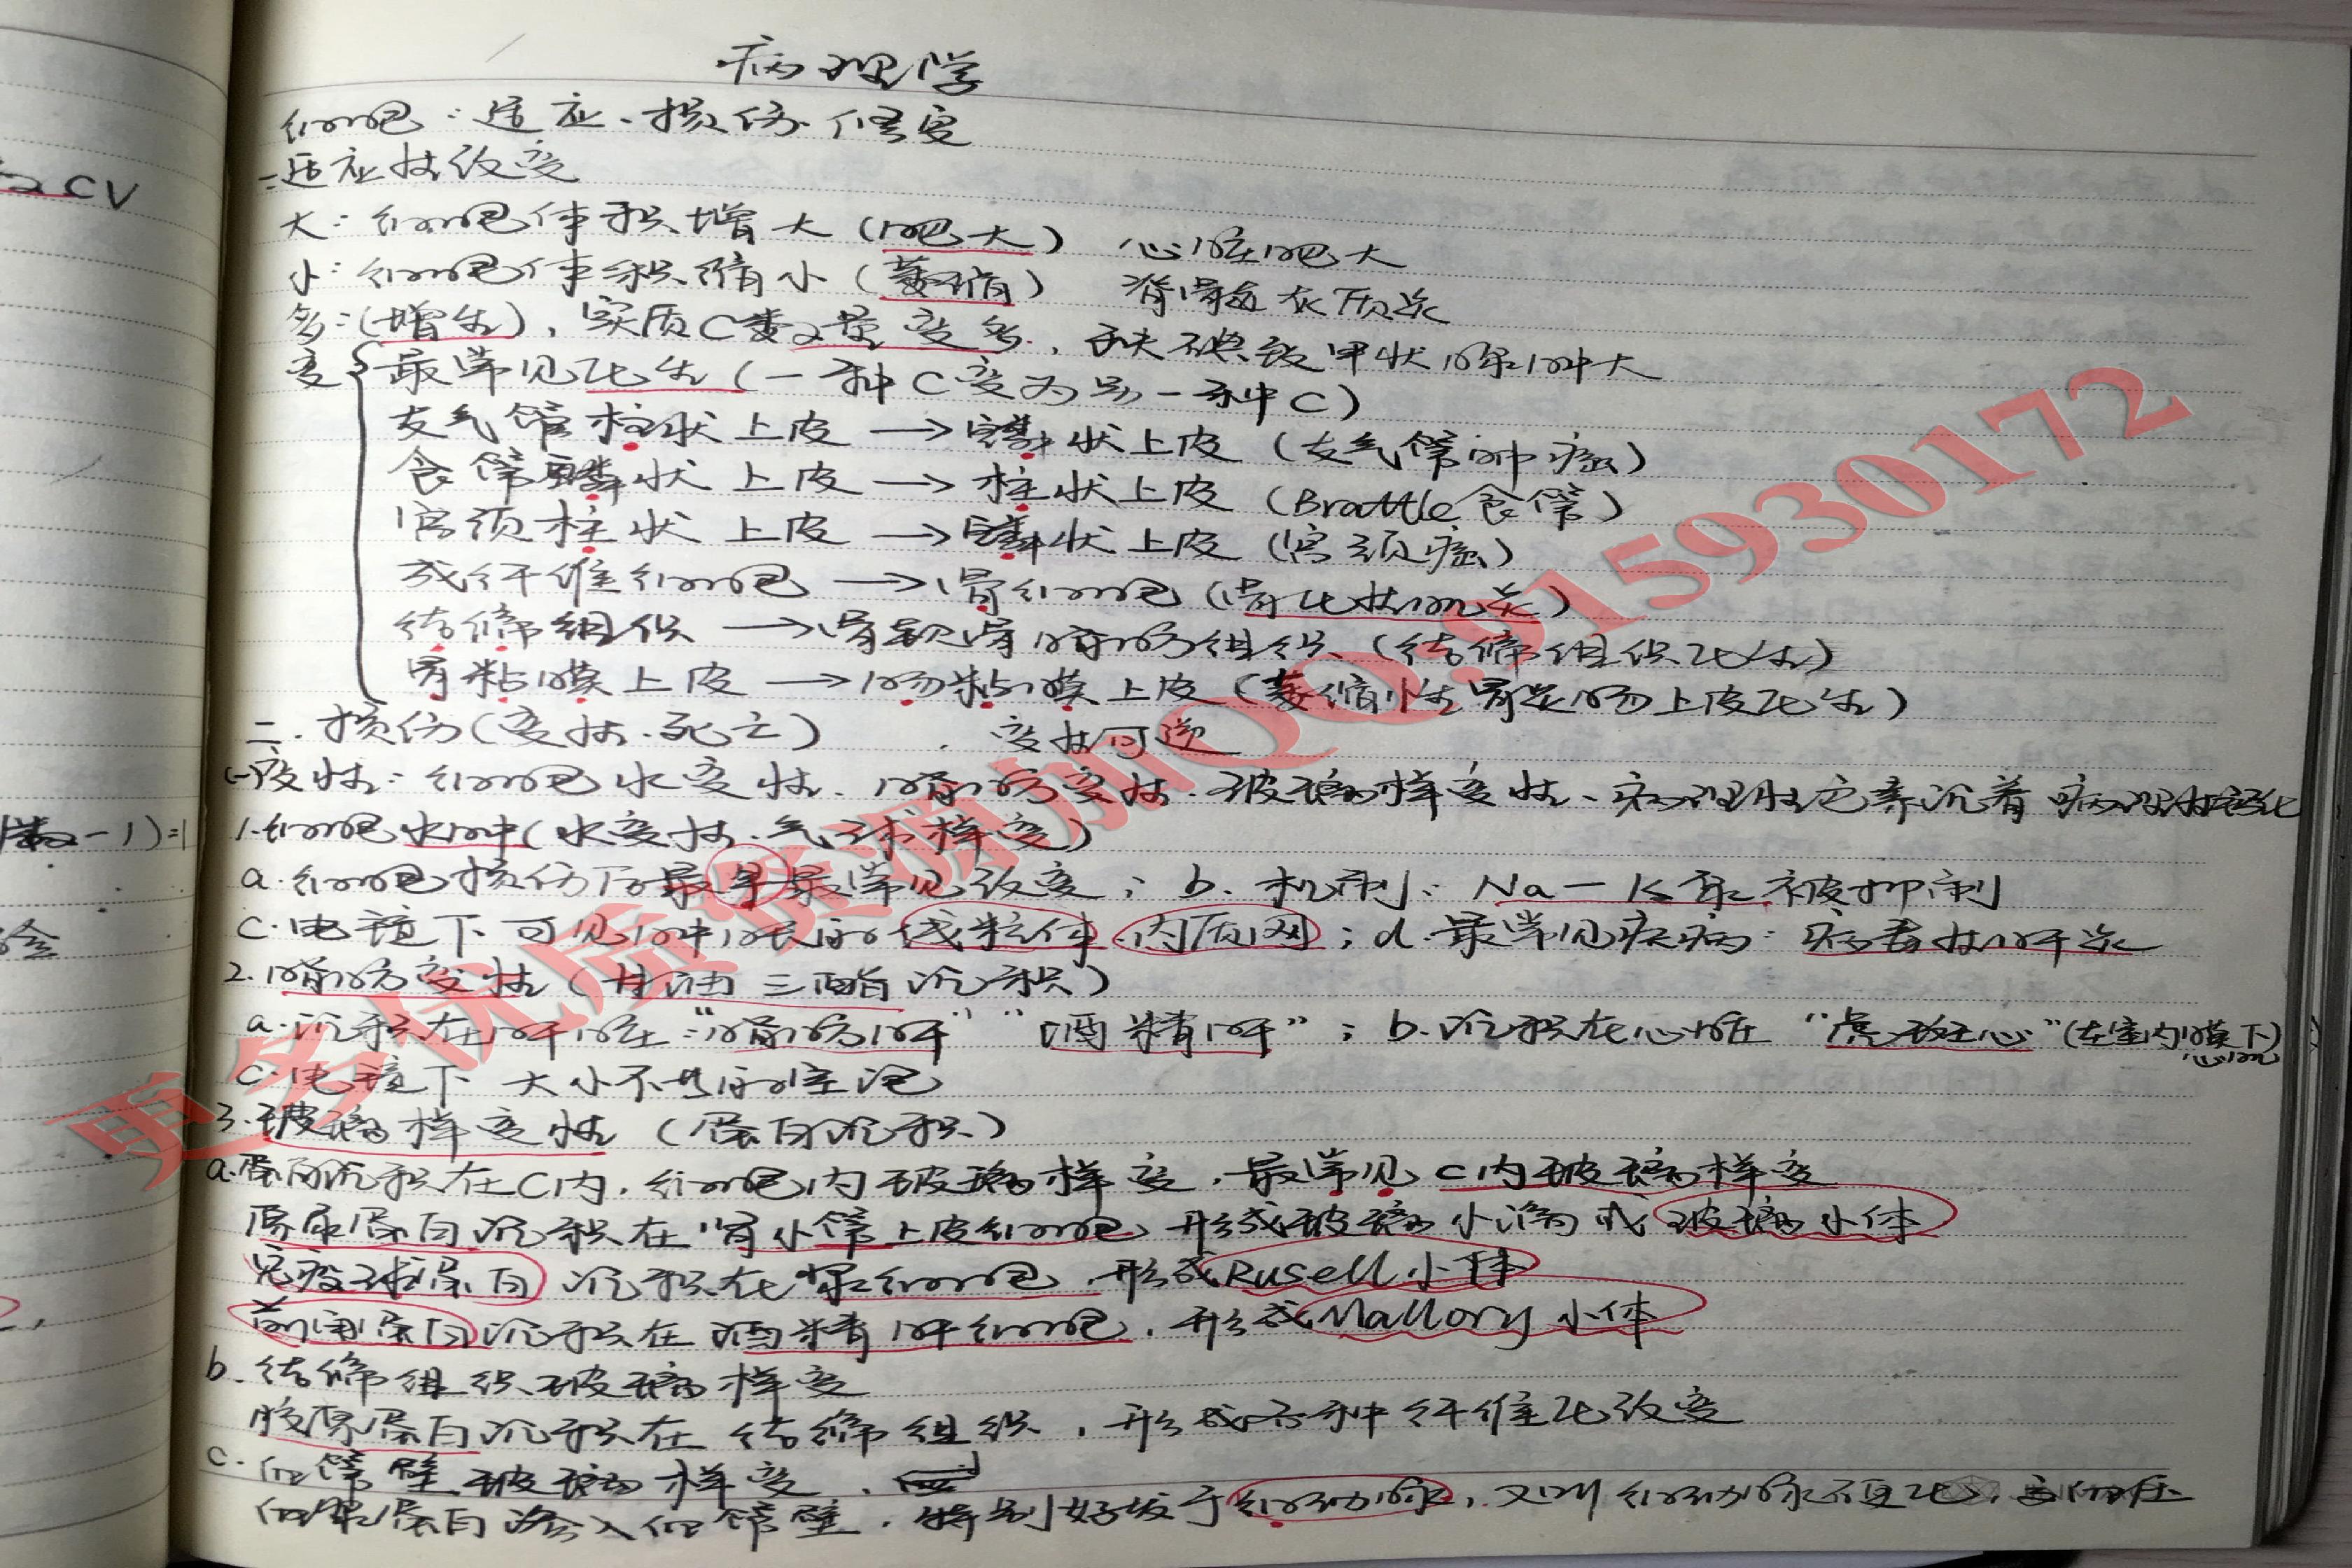 病理学
细胞:适应、损伤、修复
一适应性改变
大:细胞体积增大(肥大) 心脏肥大
小:细胞体积缩小(萎缩) 脊髓灰质炎
多:(增生),实质C数量变多,缺碘致甲状腺肿大
变 最常见化生(一种C变为另一种C)
支气管柱状上皮→鳞状上皮(支气管肿瘤)
食管鳞状上皮→柱状上皮(Brattle食管)
宫颈柱状上皮→鳞状上皮(宫颈癌)
成纤维细胞→骨细胞(骨化性肌炎)
结缔组织→骨软骨脂肪组织(结缔组织化生)
胃粘膜上皮→肠粘膜上皮(萎缩性胃炎肠上皮化生)
二.损伤(变性.死亡) 变性可逆
(一)变性:细胞水变性、脂肪变性、玻璃样变性、病理性色素沉着 病理性钙化
数-1)=1
1.细胞水肿(水变性、气球样变)
a.细胞损伤下最早最常见改变;b.机制:Na-K泵被抑制
C.电镜下可见肿胀的线粒体、内质网;d.最常见疾病:病毒性肝炎
2.脂肪变性(甘油三酯沉积)
a.沉积在肝脏:“脂肪肝”“酒精肝”;b.沉积在心脏“虎斑心”(左室内膜下)
心肌
C.电镜下 大小不等的空泡
3.玻璃样变性(蛋白沉积)
a.蛋白沉积在C内,细胞内玻璃样变,最常见C内玻璃样变
原尿蛋白沉积在肾小管上皮细胞,形成玻璃小滴或玻璃小体
免疫球蛋白沉积在浆细胞,形成Rusell小体
前角蛋白沉积在酒精肝细胞,形成Mallory小体
b.结缔组织玻璃样变
胶原蛋白沉积在结缔组织,形成各种纤维化改变
c.血管壁玻璃样变,
血浆蛋白渗入血管壁,特别好发于细动脉,又叫细动脉硬化,高血压
CV
更多优质资源加QQ:915930172